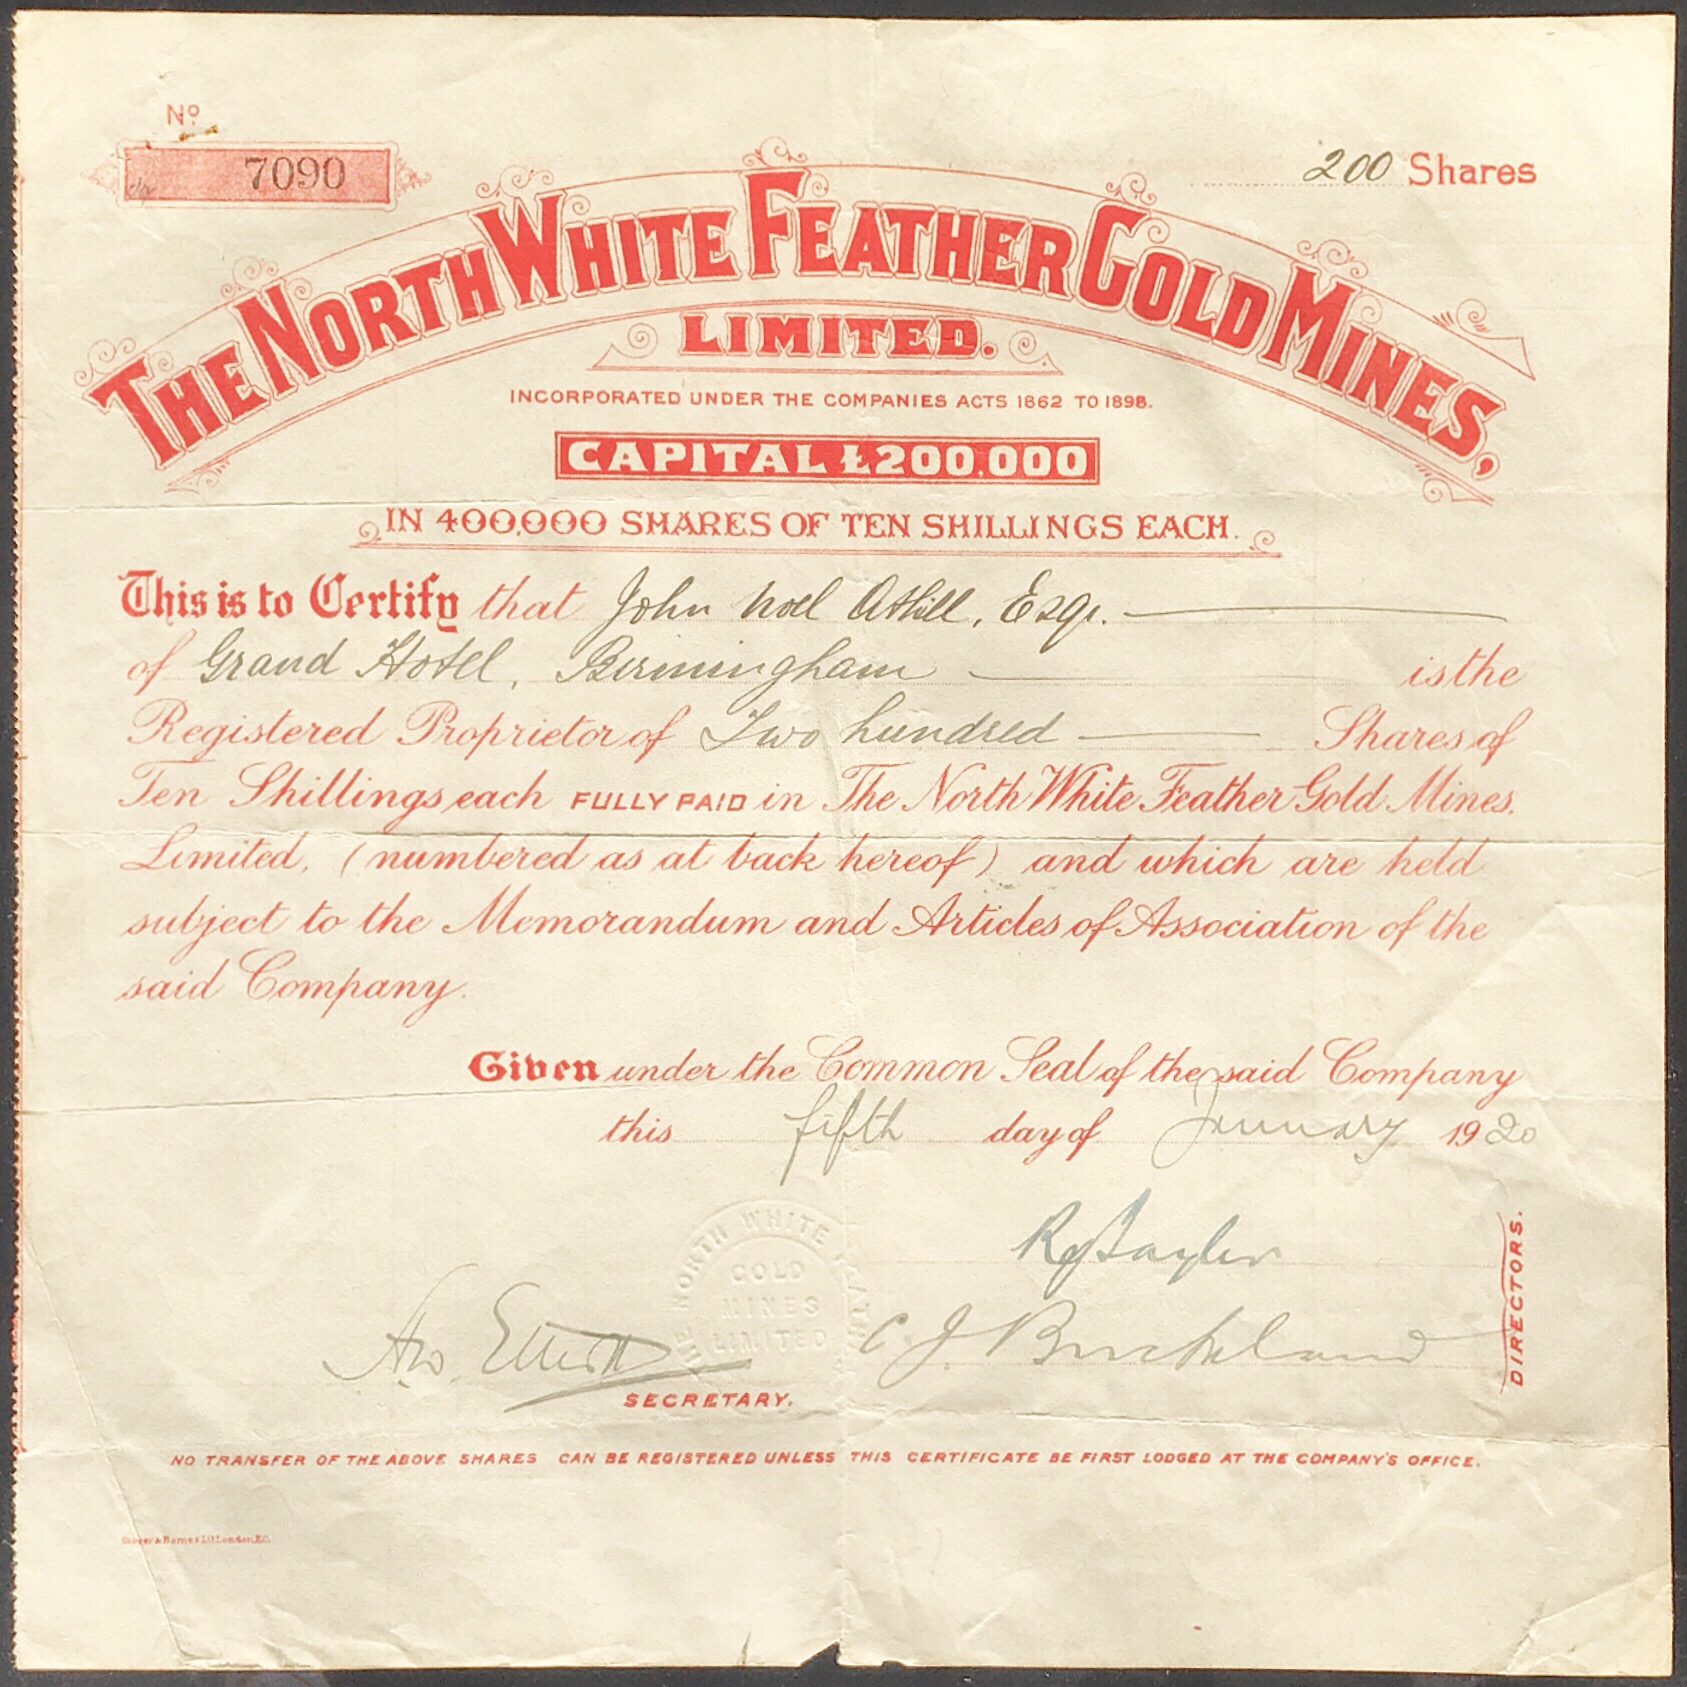 No.
7090
200 Shares
THE NORTH WHITE FEATHER GOLD MINES,
LIMITED.
INCORPORATED UNDER THE COMPANIES ACTS 1862 TO 1898.
CAPITAL £200,000
IN 400,000 SHARES OF TEN SHILLINGS EACH.
This is to Certify that John Noel Athill, Esqr.
of Grand Hotel, Birmingham is the
Registered Proprietor of Two hundred Shares of
Ten Shillings each FULLY PAID in The North White Feather Gold Mines,
Limited, (numbered as at back hereof) and which are held
subject to the Memorandum and Articles of Association of the
said Company.
Given under the Common Seal of the said Company
this fifth day of January 1920
THE NORTH WHITE FEATHER
GOLD
MINES
LIMITED
Elliott
C J
SECRETARY.
DIRECTORS.
NO TRANSFER OF THE ABOVE SHARES CAN BE REGISTERED UNLESS THIS CERTIFICATE BE FIRST LODGED AT THE COMPANY'S OFFICE.
& Barnes Ld. London, E.C.